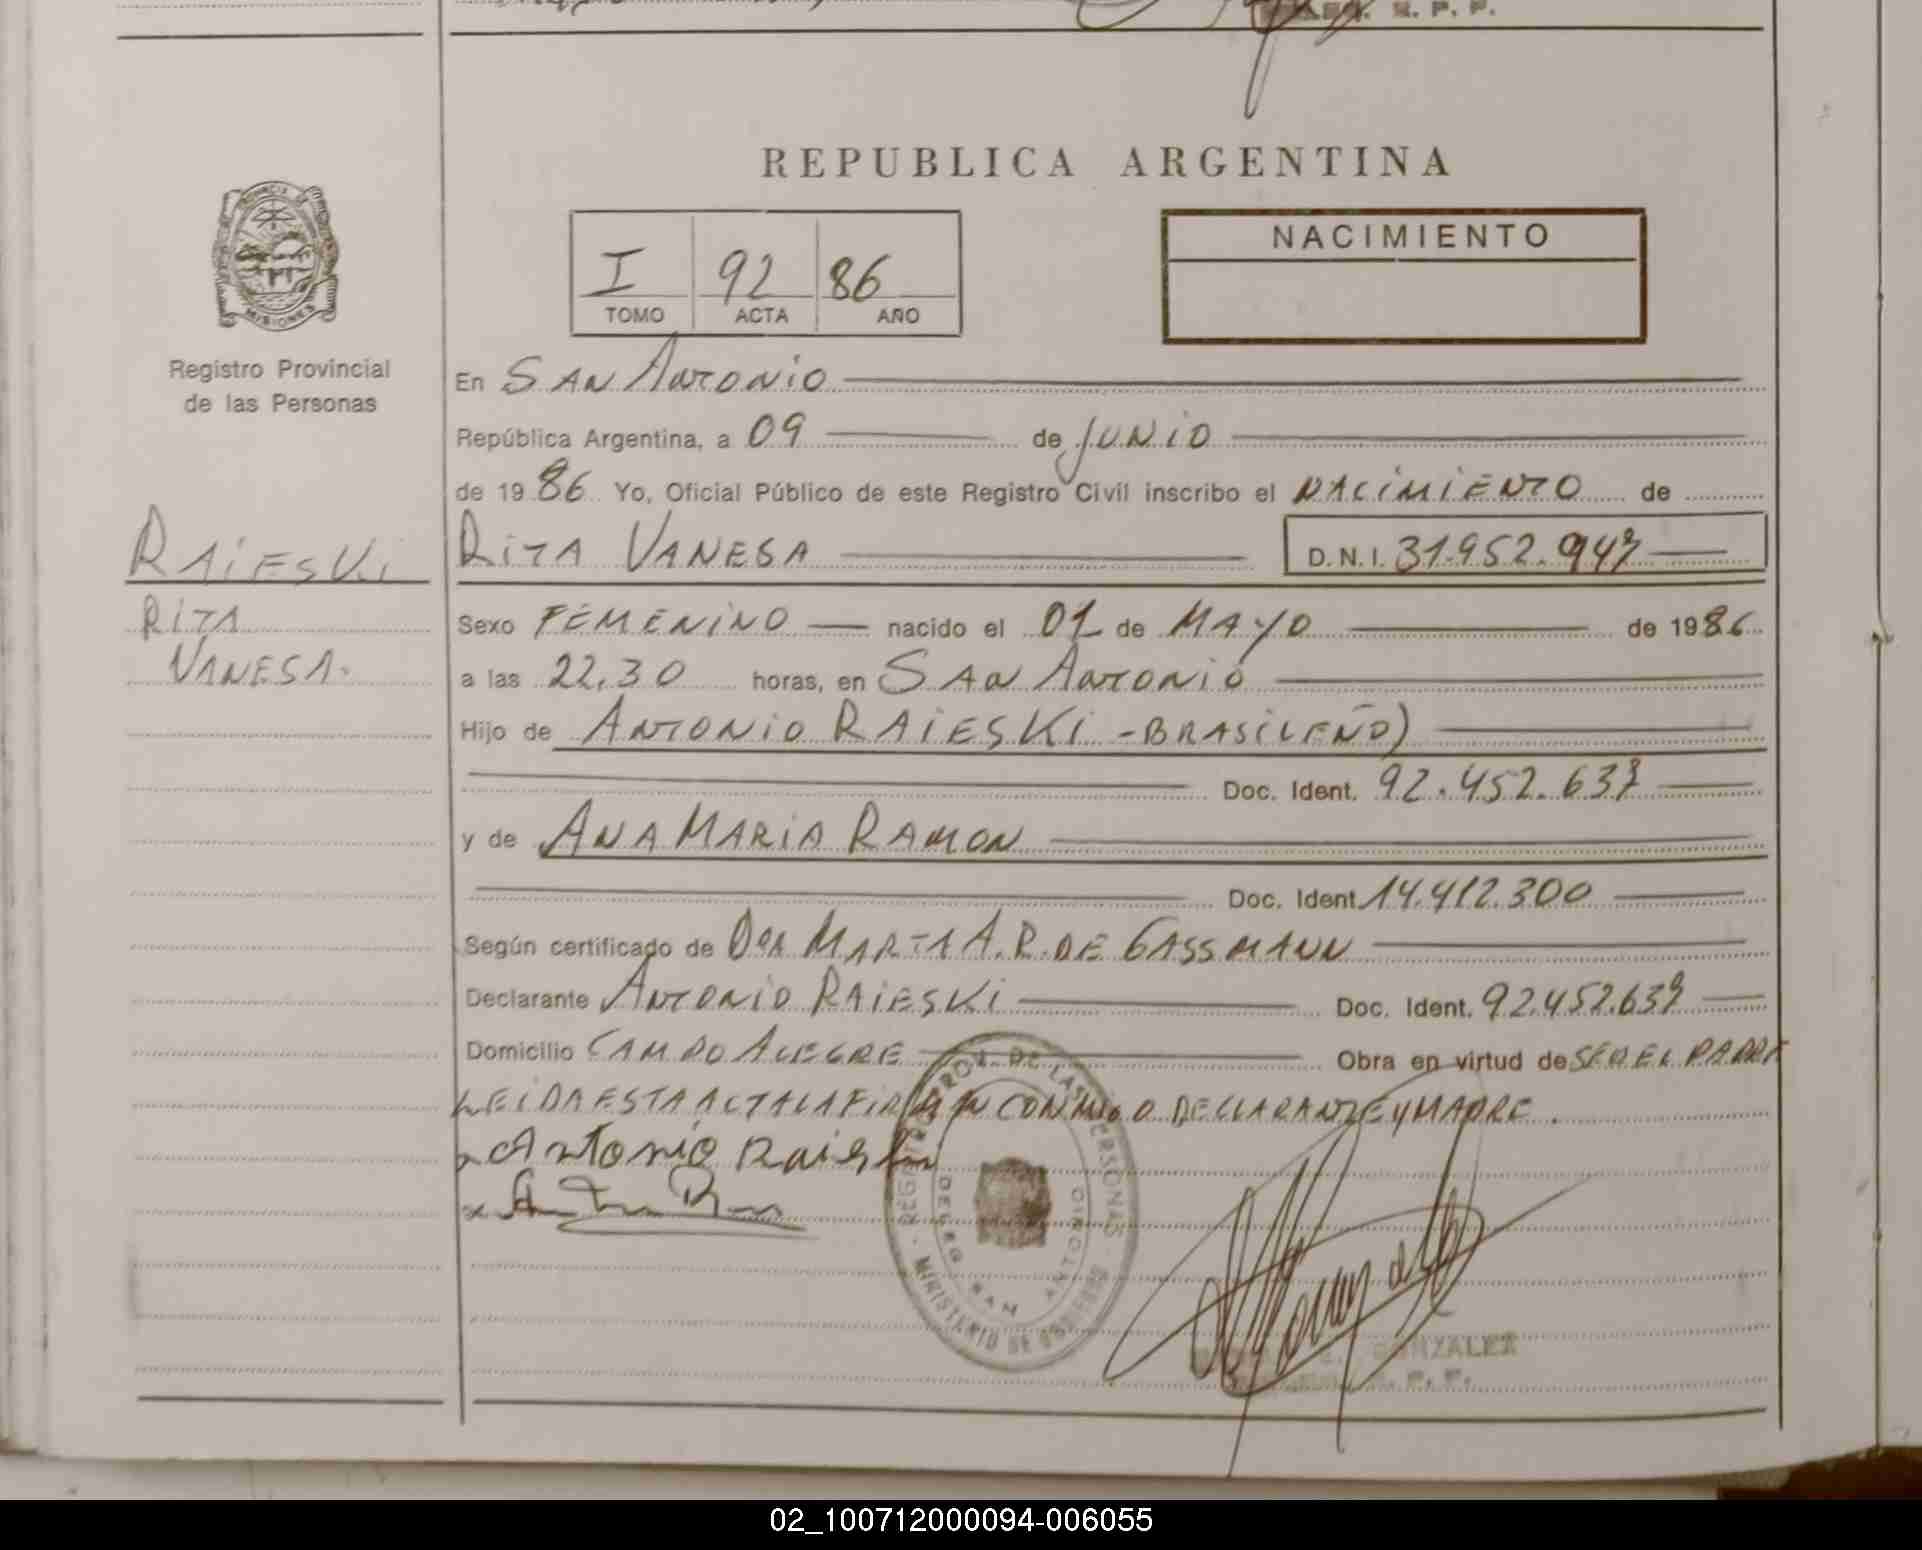 R. P. P.
REPUBLICA ARGENTINA
PROVINCIA
MISIONES
I 92 86
TOMO ACTA AÑO
NACIMIENTO
Registro Provincial
de las Personas
En SAN ANTONIO
República Argentina, a 09 de JUNIO
de 1986 Yo, Oficial Público de este Registro Civil inscribo el NACIMIENTO de
RAIESKI
RITA
VANESA.
RITA VANESA D.N.I. 31.952.947
Sexo FEMENINO nacido el 01 de MAYO de 1986
a las 22,30 horas, en SAN ANTONIO
Hijo de ANTONIO RAIESKI - BRASILEÑO)
Doc. Ident. 92.452.637
y de ANA MARIA RAMON
Doc. Ident 14.412.300
Según certificado de DOÑA MARTA A. R. DE GASSMANN
Declarante ANTONIO RAIESKI Doc. Ident. 92.452.637
Domicilio CAMPO ALEGRE Obra en virtud de SER EL PADRE
LEIDA ESTA ACTA LA FIRMAN CONMIGO DECLARANTE Y MADRE.
x Antonio Raieski
x
REGISTRO PROV. DE LAS PERSONAS
MINISTERIO DE GOBIERNO
SAN ANTONIO
GONZALEZ
R. P. P.
02_100712000094-006055